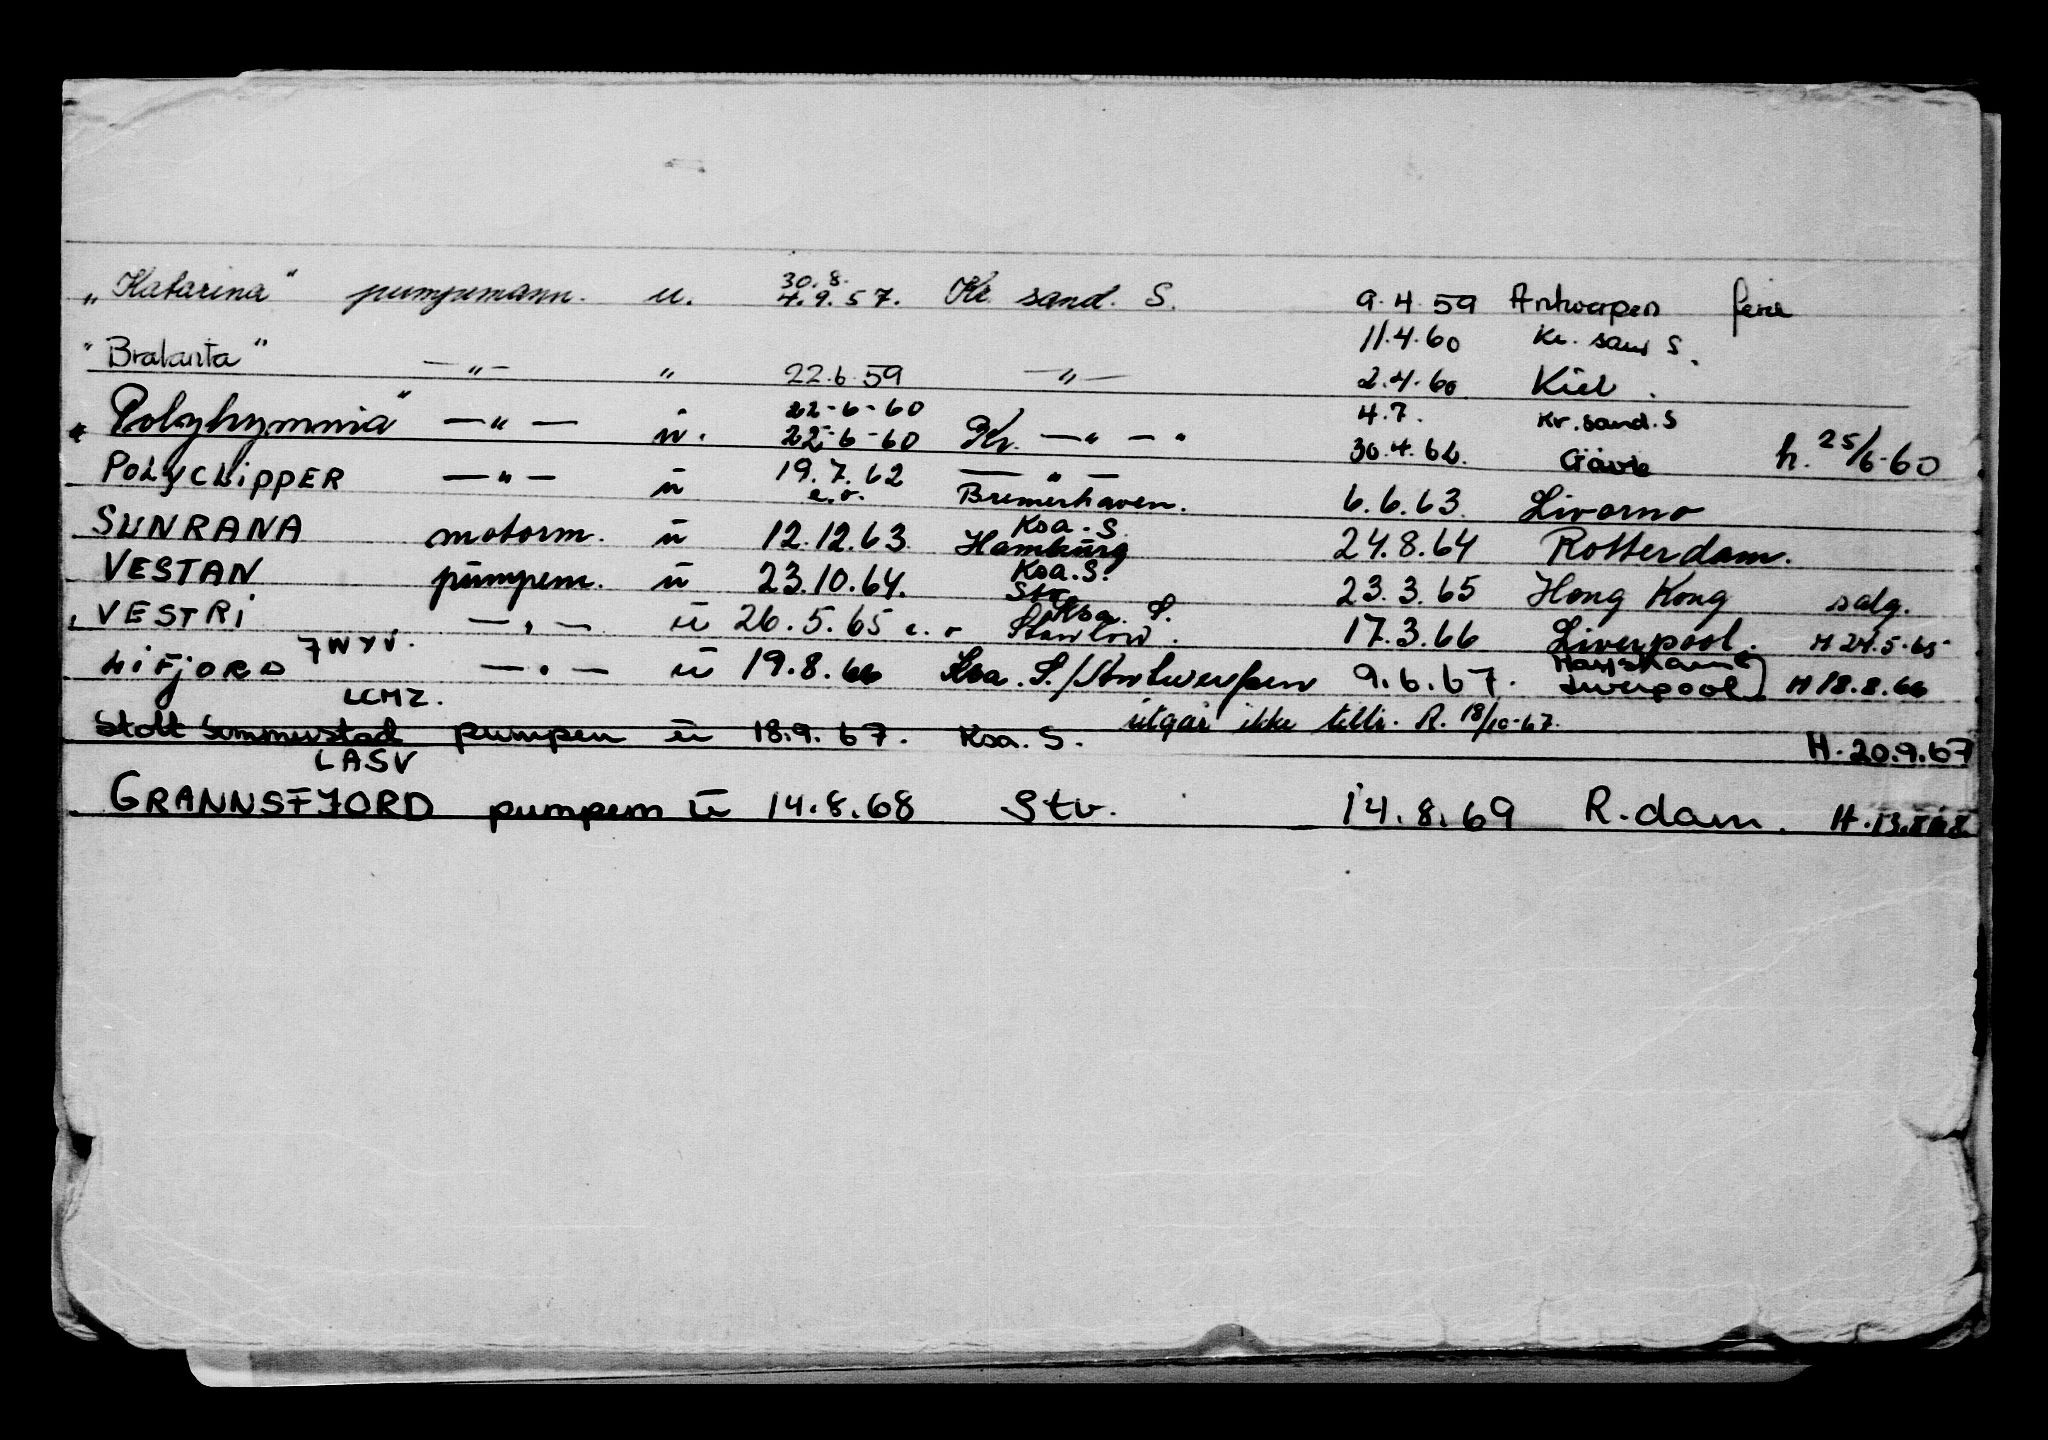 30.8.
„Katarina" pumpemann. u. 4.9.57. Kr sand. S. 9.4.59 Antwerpen ferie
11.4.60 Kr. sand S.
"Bralanta" —„— „ 22.6.59 —„— 2.4.60 Kiel.
22-6-60 4.7. Kr.sand.S
"Polyhymnia" —„— u. 22-6-60 Kr. —„— 30.4.62. Gävle h. 25/6-60
POLYCLIPPER —„— u 19.7.62 —„—
e.o. Bremerhaven. 6.6.63. Livorno
Ksa. S.
SUNRANA motorm. u 12.12.63 Hamburg 24.8.64 Rotterdam.
Ksa. S.
VESTAN pumpem. u 23.10.64. 23.3.65 Hong Kong salg.
Ksa. S.
VESTRI —„— u 26.5.65 e.o Stanlow. 17.3.66 Liverpool. H 24.5.65
JWYV.
LiFjORD —„— u 19.8.66 Ksa. S./Antwerpen 9.6.67. Liverpool H 18.8.66
LCMZ.
utgår ikke tiltr. R. 18/10-67.
Stolt Sommerstad pumpem u 18.9.67. Ksa. S. H. 20.9.67
LASV
GRANNSFJORD pumpem u 14.8.68 Stv. 14.8.69 R.dam. H. 13.8.68